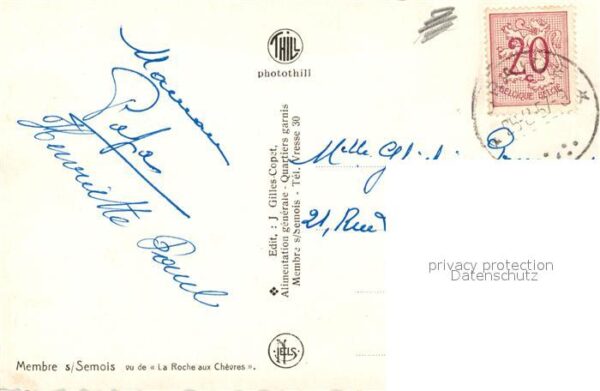 Maman
Papa
Henriette Paul
THILL
photothill
Edit. : J Gilles-Copet,
Alimentation générale - Quartiers garnis
Membre s/Semois - Tél. Vresse 30
NELS
Membre s/Semois vu de « La Roche aux Chèvres ».
20
c
BELGIQUE BELGIE
Mlle
21, Rue
privacy protection
Datenschutz